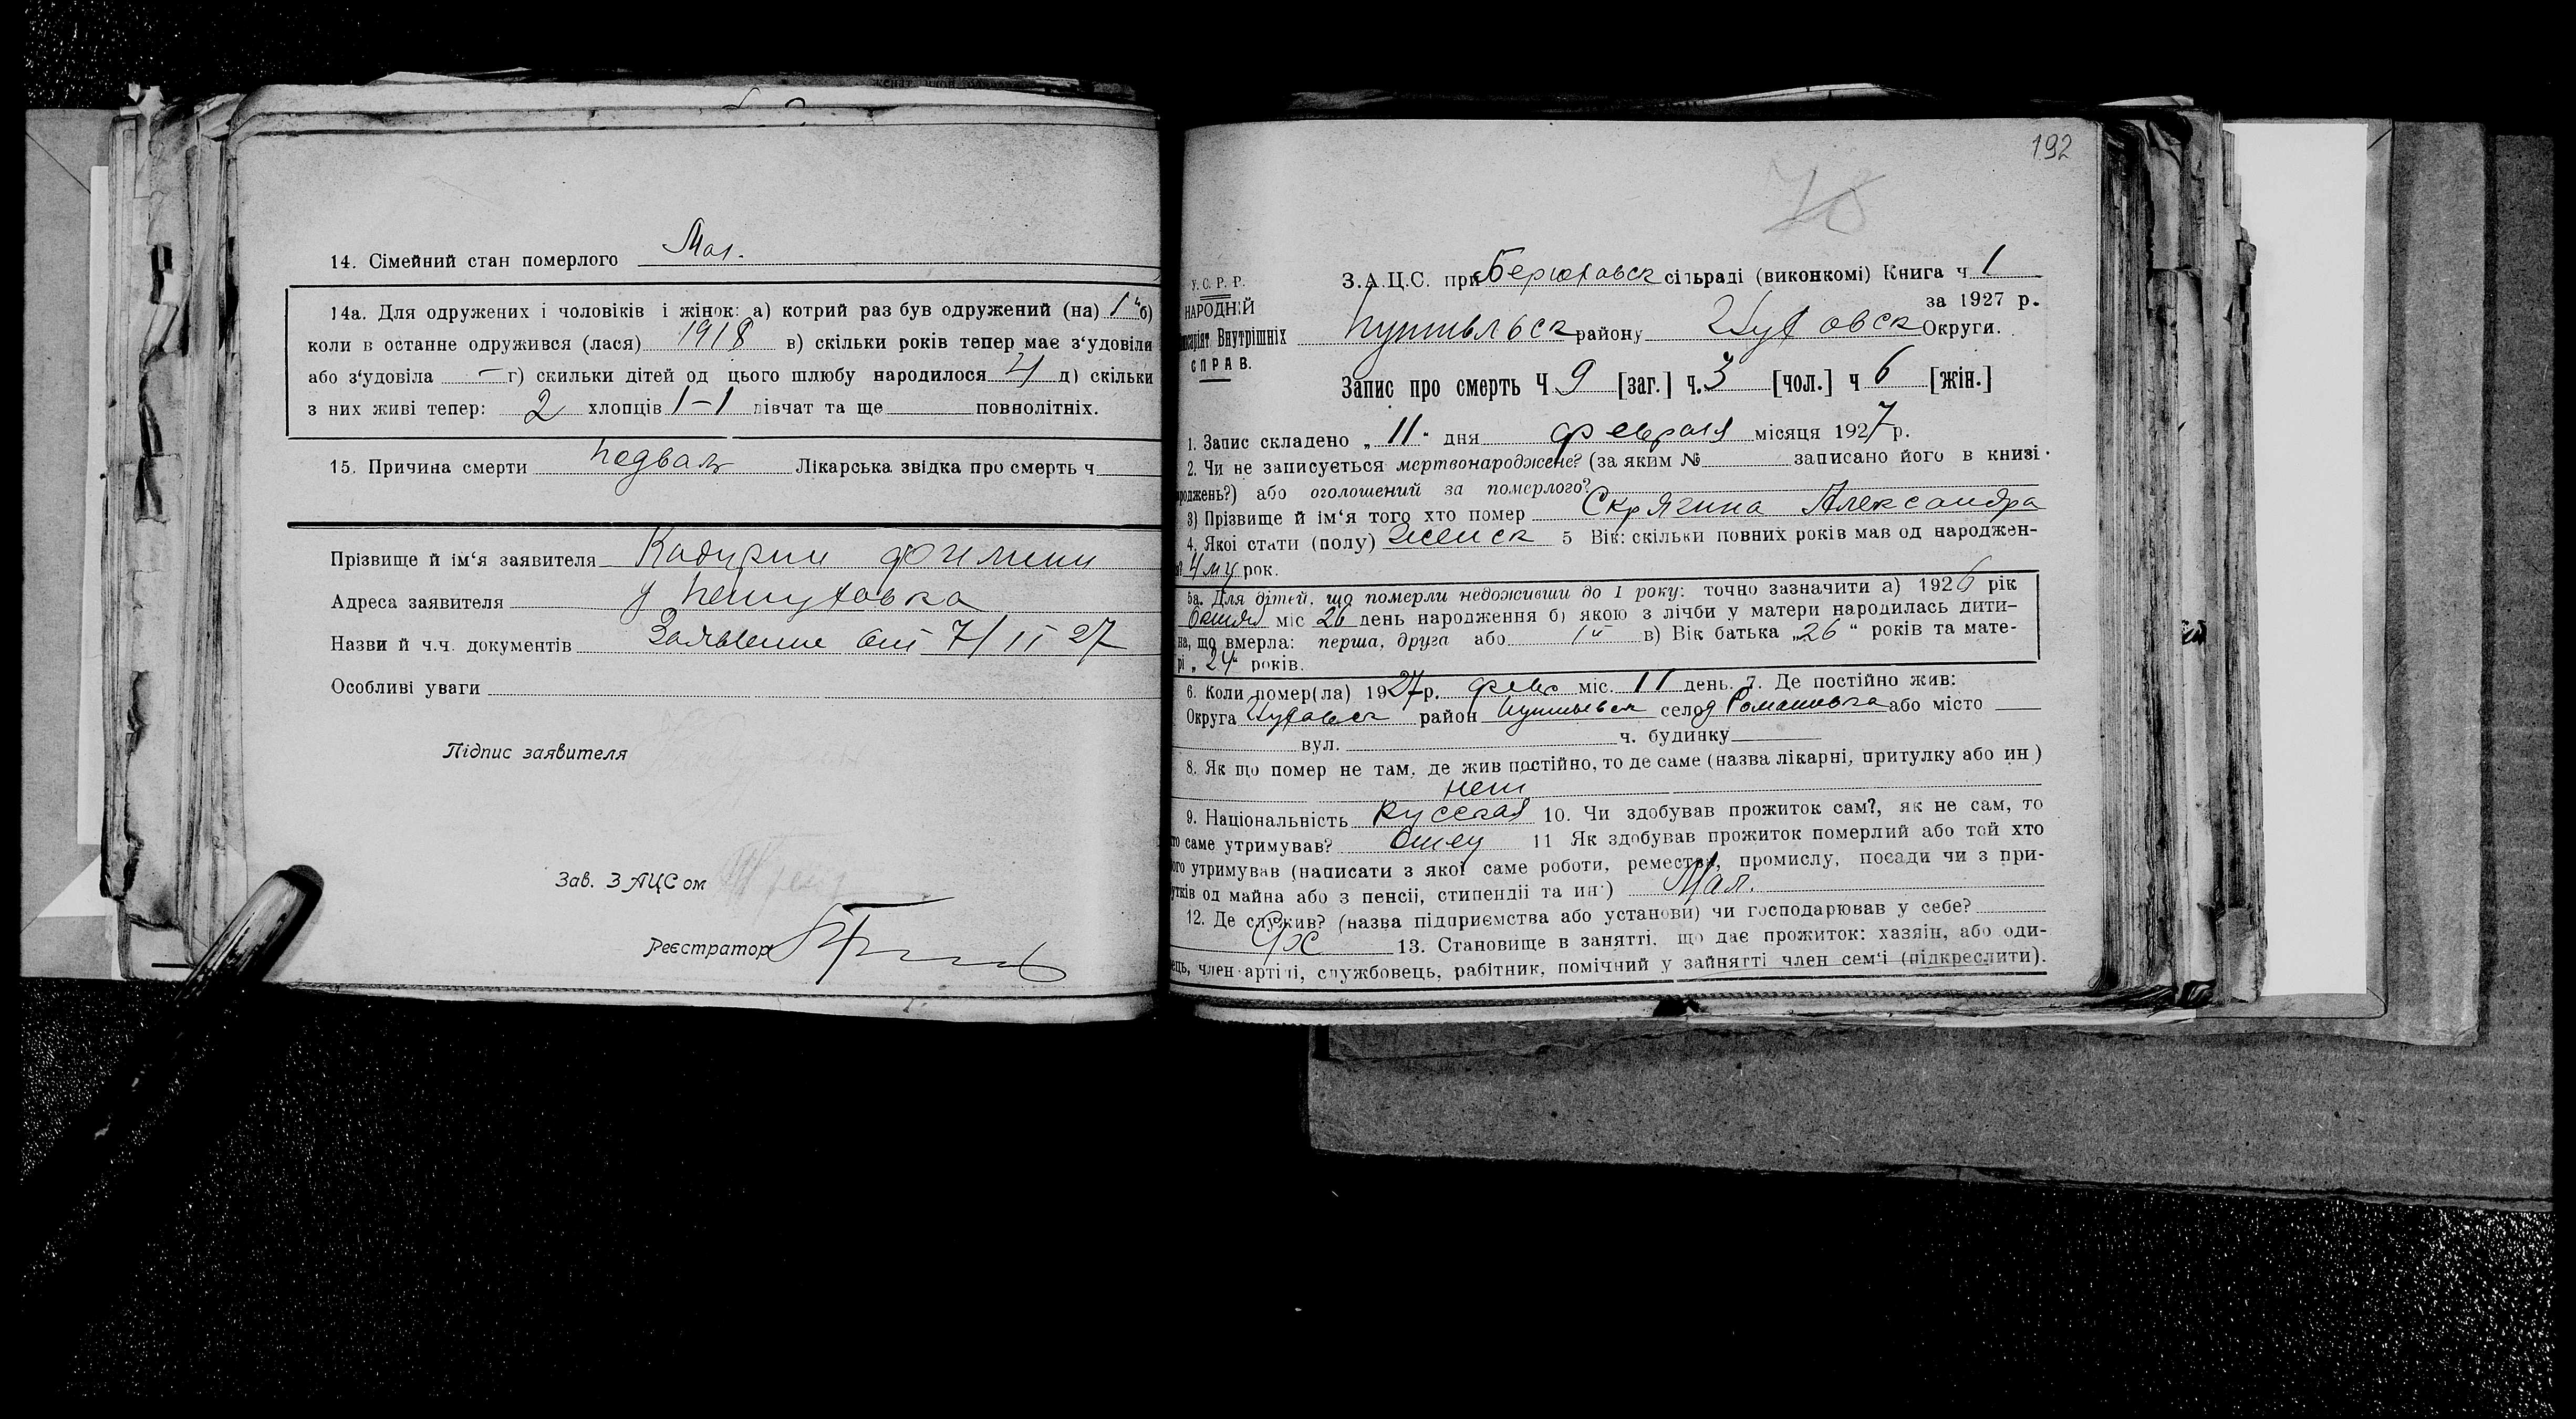 14. Сімейний стан померлого Мал.
14а. Для одружених і чоловіків і жінок: а) котрий раз був одружений (на) 1й б)
коли в останне одружився (лася) 1918 в) скільки років тепер має з‘удовіли
або з‘удовіла — г) скильки дітей од цього шлюбу народилося 4 д) скільки
з них живі тепер: 2 хлопців 1-1 дівчат та ще повнолітніх.
15. Причина смерти Лікарська звідка про смерть ч
Прізвище й ім‘я заявителя
Адреса заявителя
Назви й ч.ч. документів Заявление от 7/II 27
Особливі уваги
Підпис заявителя
Зав. ЗАЦСом
Реєстратор
192
У. С. Р. Р.
НАРОДНІЙ
Внутрішніх
СПРАВ.
З.А.Ц.С. при Берюховск сільраді (виконкомі) Книга ч 1
за 1927 р.
Путивльск району Глуховск Округи.
Запис про смерть Ч 9 [заг.] ч. 3 [чол.] ч 6 [жін.]
1. Запис складено „ 11 “ дня февраля місяця 1927 р.
2. Чи не записується мертвонароджене? (за яким № записано його в книзі
роджень?) або оголошений за померлого?
3) Прізвище й ім‘я того хто помер Скрягина Александра
4. Якої стати (полу) женск 5 Вік: скільки повних років мав од народжен-
4 мц рок.
5а. Для дітей, що померли недоживши до 1 року: точно зазначити а) 1926 рік
Октяб міс 26 день народження б) якою з лічби у матери народилась дити-
на, що вмерла: перша, друга або 1й в) Вік батька „26“ років та мате-
рі „ 24“ років.
6. Коли помер(ла) 1927 р. февр міс. 11 день. 7. Де постійно жив:
Округа Глуховск район Путивльск село д Ромашовка або місто
вул. ч. будинку
8. Як що помер не там, де жив постійно, то де саме (назва лікарні, притулку або ин)
нет
9. Національність Русская 10. Чи здобував прожиток сам?, як не сам, то
то саме утримував? Отец 11 Як здобував прожиток померлий або той хто
ого утримував (написати з якої саме роботи, ремества, промислу, посади чи з при-
утків од майна або з пенсії, стипендії та ин.) Мал.
12. Де служив? (назва підприємства або установи) чи господарював у себе?
13. Становище в занятті, що дає прожиток: хазяїн, або оди-
ець, член артілі, службовець, рабітник, помічний у зайнятті член сем‘ї (підкреслити).